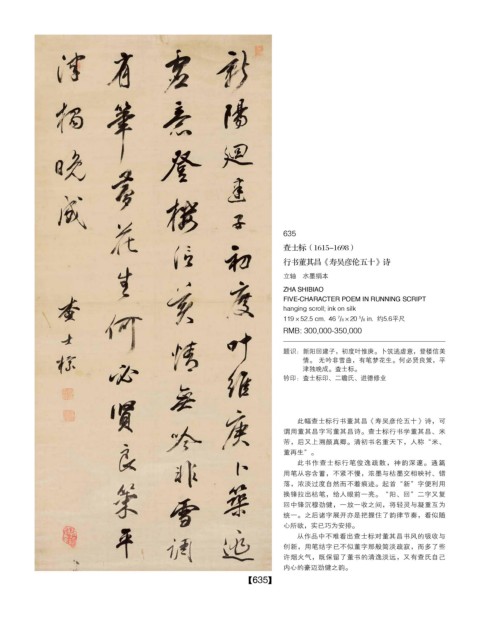 新陽廻建子初度叶維庚卜築逃
虚意登樓信美情無吟非雪調
有筆夢花生何必賢良策平
津獨晚成
查士標
635
查士标（1615–1698）
行书董其昌《寿吴彦伦五十》诗
立轴 水墨绢本
ZHA SHIBIAO
FIVE-CHARACTER POEM IN RUNNING SCRIPT
hanging scroll; ink on silk
119×52.5 cm. 46 7/8×20 5/8 in. 约5.6平尺
RMB: 300,000-350,000
题识：新阳回建子，初度叶惟庚。卜筑逃虚意，登楼信美
情。无吟非雪曲，有笔梦花生。何必贤良策，平
津独晚成。查士标。
钤印：查士标印、二瞻氏、进德修业
此幅查士标行书董其昌《寿吴彦伦五十》诗，可
谓用董其昌字写董其昌诗。查士标行书学董其昌、米
芾，后又上溯颜真卿。清初书名重天下，人称“米、
董再生”。
此书作查士标行笔俊逸疏散，神韵深邃。通篇
用笔从容含蓄，不紧不慢，浓墨与枯墨交相映衬，错
落，浓淡过度自然而不着痕迹。起首“新”字便利用
换锋拉出枯笔，给人眼前一亮。“阳、回”二字又复
回中锋沉稳劲健，一放一收之间，将轻灵与凝重互为
统一。之后诸字展开亦是把握住了韵律节奏，看似随
心所欲，实已巧为安排。
从作品中不难看出查士标对董其昌书风的吸收与
创新，用笔结字已不似董字那般简淡疏寂，而多了些
许烟火气，既保留了董书的清逸淡远，又有查氏自己
内心的豪迈劲健之韵。
【635】